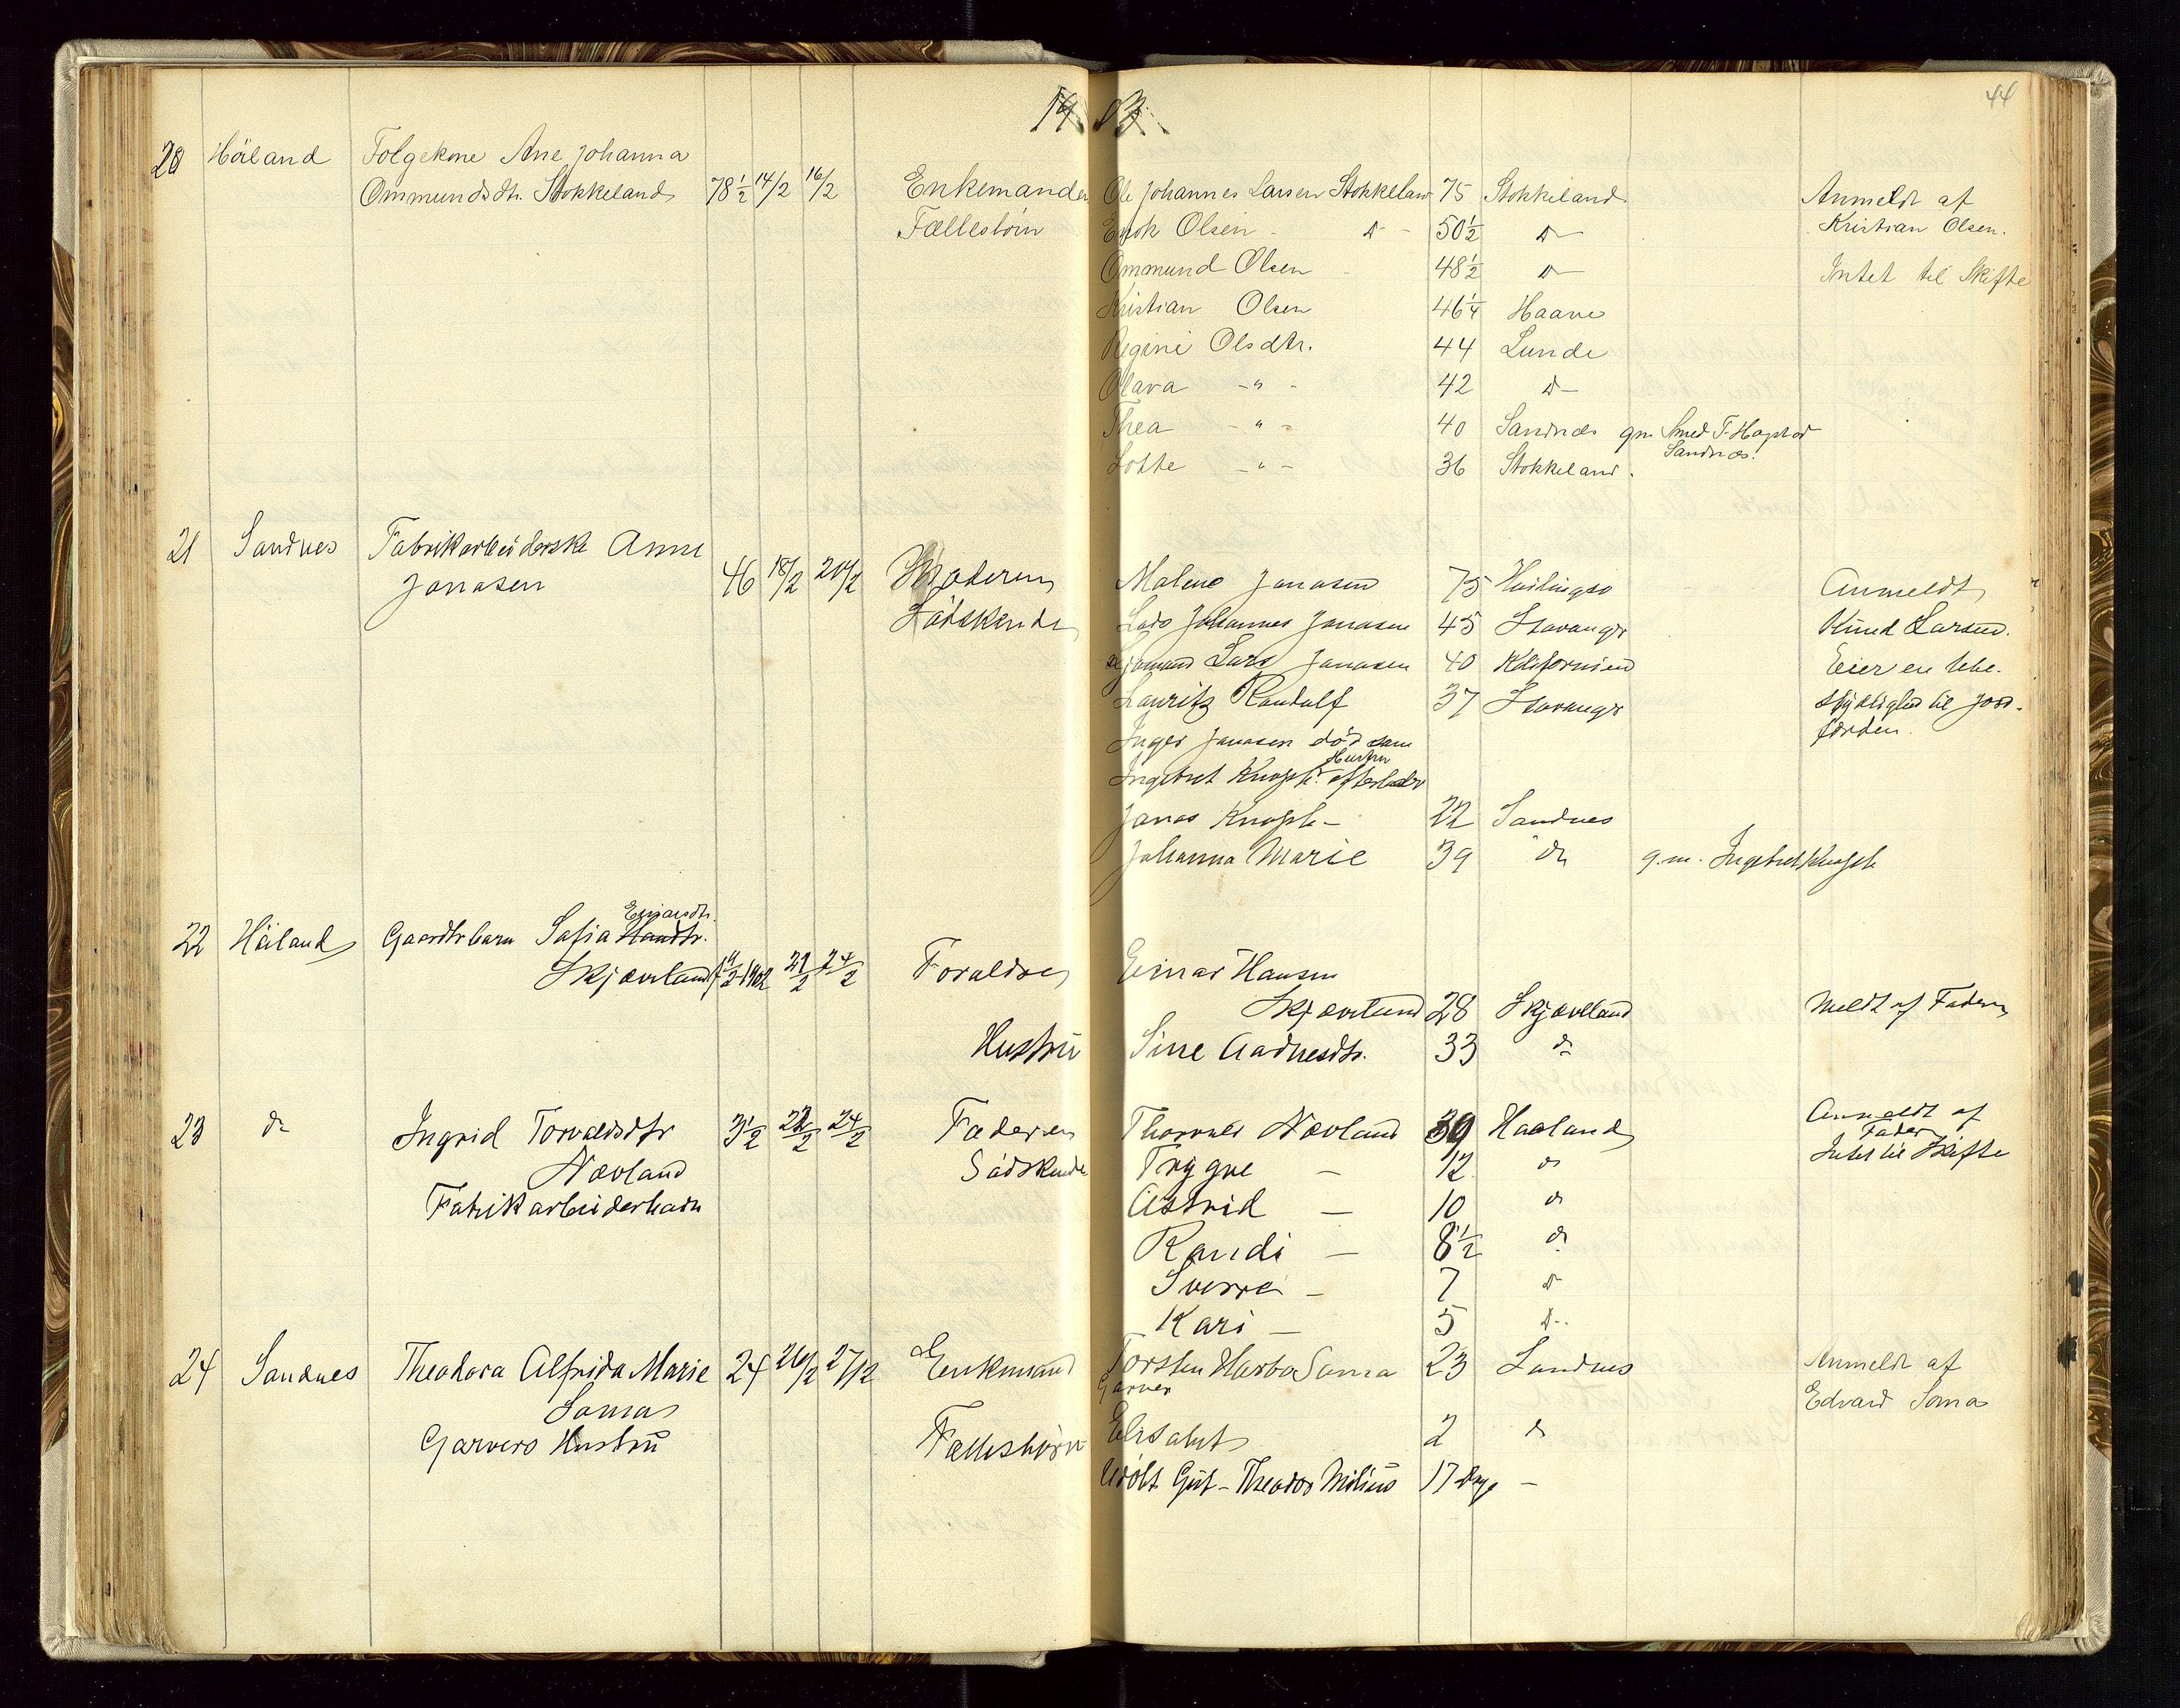 44
19 03.
20 Höiland Folgekone Ane Johanna
Ommundsdtr. Stokkeland 78½ 14/2 16/2 Enkemanden Ole Johannes Larsen Stokkeland 75 Stokkeland Anmeldt af
Fællesbörn Enok Olsen - D - 50½ D- Kristian Olsen.
Ommund Olsen 48½ D- Intet til Skifte
Kristian Olsen 46¼ Haave
Regine Olsdtr. 44 Lunde
Olava -"- 42 D-
Thea -"- 40 Sandnæs gm. Smed T.
Sandnæs.
Lotte -"- 36 Stokkeland.
21 Sandnes Fabrikarbeiderske Anne
Jonasen 46 18/2 20/2 Moderen Malene Jonasen 75 Anmeldt
Södskende Lars Johannes Jonasen 45 Stavanger Knud Larsen.
Sjömand Lars Jonasen 40 Kalifornien Eier en ube-
Lauritz Randulf 37 Stavanger tydelighed til Jord-
færden.
Inger Jonasen död som
Hustru
Ingebret efterlader
Jonas 22 Sandnes
Johanna Marie 39 do g.m. Ingebret
Einarsdtr.
22 Höiland Gaardbr barn Sofia Hansdtr.
Skjæveland 1902 21/2 24/2 Forældre Einar Hansen
Skjæveland 28 Skjæveland Meldt af Faderen
Hustru Sine Aadnesdtr. 33 do
23 do Ingrid Torvaldsdtr 3½ 22/2 24/2 Faderen Thorvald Nævland 39 Høiland Anmeldt af
Fader
Nævland Södskende Trygve - 12 do Intet til Skifte
Fabrikarbeiderbarn Astrid - 10 do
Randi - 8½ do
Sverre - 7 D-
Kari - 5 D-
24 Sandnes Theodora Alfrida Marie 24 26/2 27/2 Enkemand Torsten Harbo Soma 23 Sandnes Anmeldt af
Garver
Somas Edvard Soma
Garvers Hustru Fællesbörn Elisabet 2 do
Udöbt Gut - Theodor Milius 17 Dage -